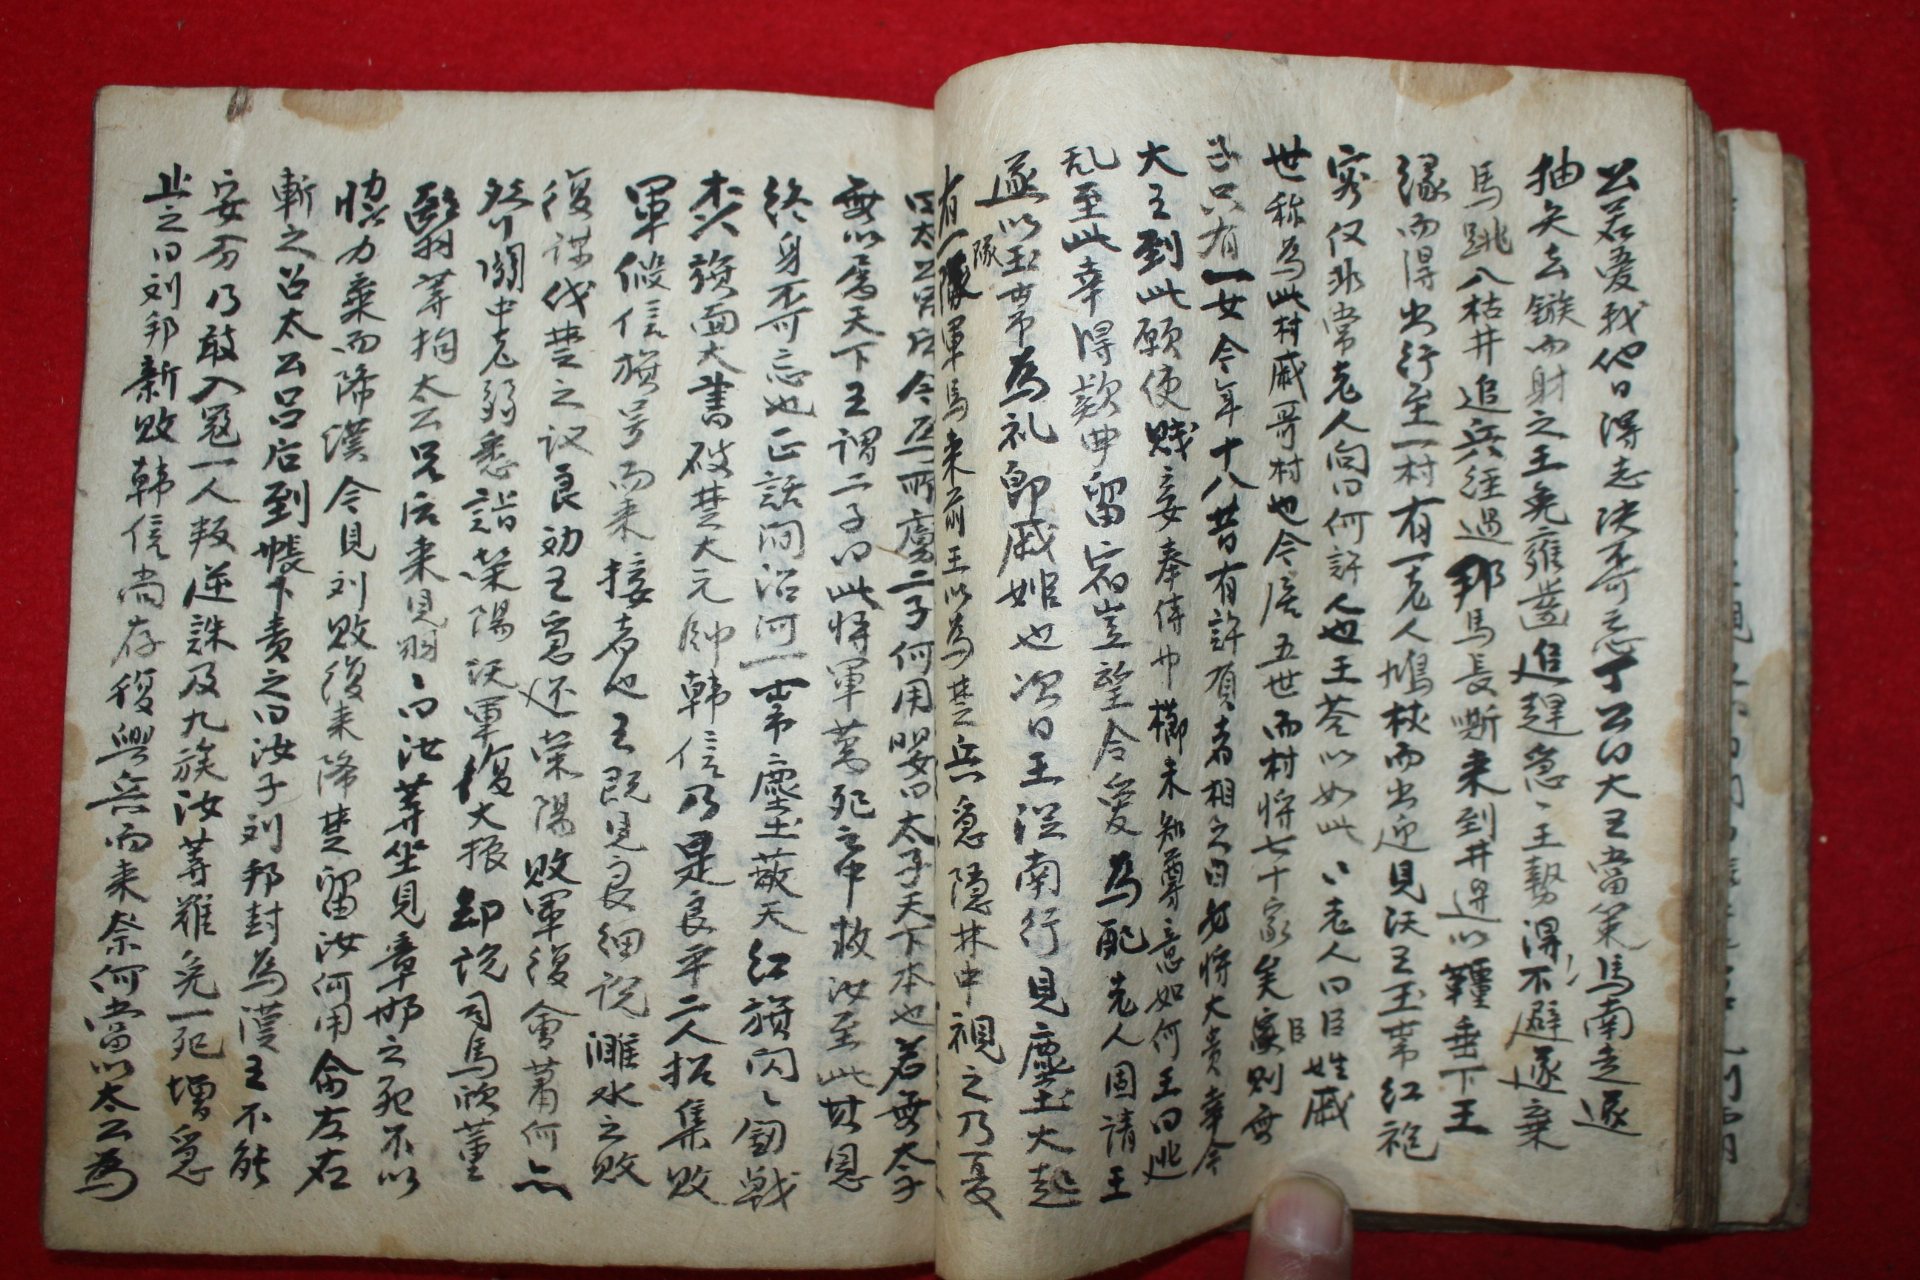 公若爱我他日得志决不可忘丁公曰大王當策馬南走遂
抽矢去鏃而射之王免雍齒追趕急〻王勢得不避遂棄
馬跳入枯井追兵經過邦馬長嘶来到井邊以韁垂下王
緣而得出行至一村有一老人鳩杖而出迎見沃王玉帶紅袍
容仅非常老人向曰何許人也王荅以如此〻老人曰臣姓戚
世称為此村戚哥村也今居五世而村將七十家矣臣家則無
子只有一女今年十八昔有許負者相之曰女將大貴幸今
大王到此願使賤妾奉侍巾櫛未知尊意如何王曰逃
乱至此幸得款曲留宿豈望令愛為配老人固請王
遂以玉帶為礼即戚姬也次日王從南行見塵土大起
有一隊軍馬来前王以為楚兵急隱林中視之乃夏
曰太公吕后今在所虜二子何用嬰曰太子天下本也若無太子
無以為天下王謂二子曰此將軍萬死之中救汝至此其恩
終身不可忘也正話间沿河一帶塵土蔽天紅旗闪〻劍戟
森〻旗面大書破楚大元帥韓信乃是良平二人招集敗
軍假信旗号而来接者也王既見良細說濉水之敗
復謀伐楚之议良劝王急还荣陽敗軍復會蕭何亦
發關中老弱悉詣荣陽沃軍復大振却說司馬欣董
翳等拘太公吕后来見羽〻曰汝等坐見章邯之死不以
恊力棄而降漢今見刘敗復来降楚留汝何用命左右
斬之召太公吕后到帳下責之曰汝子刘邦封為漢王不能
安分乃敢入寇一人叛逆誅及九族汝等难免一死增急
止之曰刘邦新敗韩信尚存復興兵而来奈何當以太公為